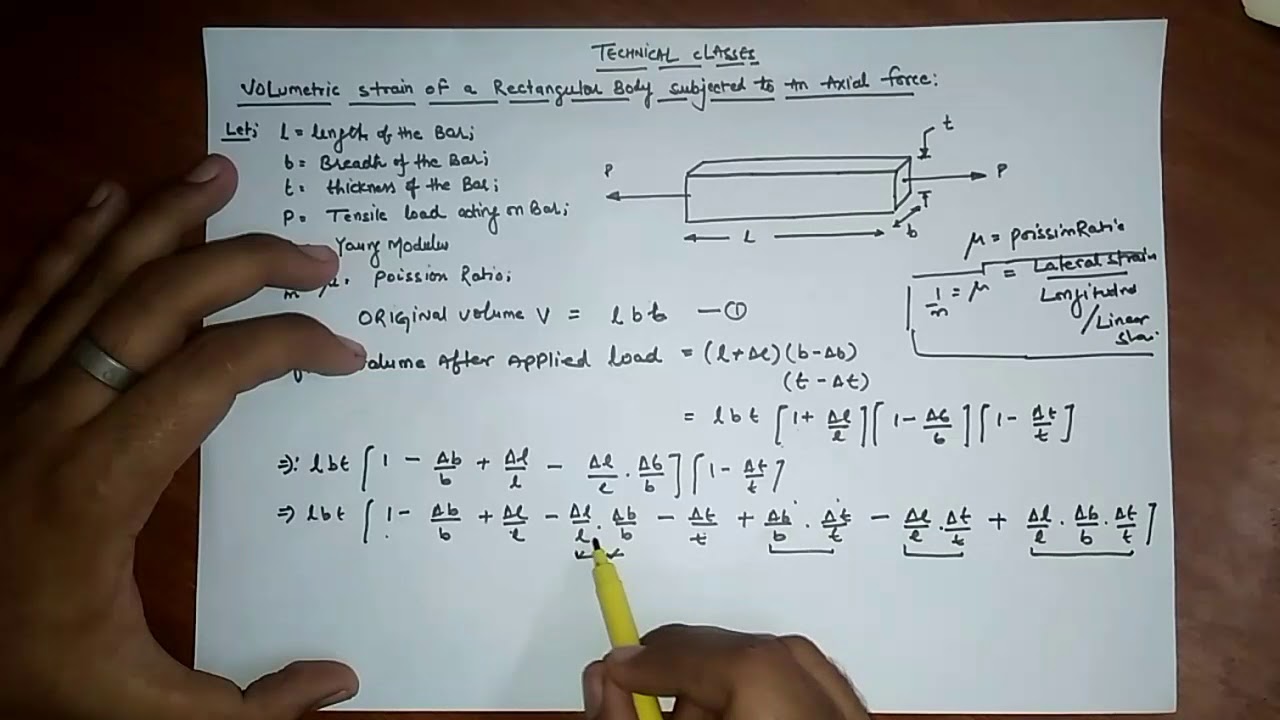 TECHNICAL CLASSES
Volumetric strain of a Rectangular Body subjected to An Axial force:
Let; l = length of the Bar;
b = Breadth of the Bar;
t = thickness of the Bar;
P = Tensile load acting on Bar;
Young Modulus
μ. Poission Ratio;
t
P
P
L
b
μ = poissin Ratio
1/m = μ = Lateral strain
Longitudnal
/Linear
ORIGINAL volume V = l b t — ①
After Applied load = (l+Δl)(b-Δb)
(t-Δt)
= l b t [1+ Δl/l][1- Δb/b][1- Δt/t]
⇒: lbt [1 - Δb/b + Δl/l - Δl/l . Δb/b][1- Δt/t]
⇒ lbt [1- Δb/b + Δl/l - Δl/l . Δb/b - Δt/t + Δb/b . Δt/t - Δl/l . Δt/t + Δl/l . Δb/b . Δt/t]